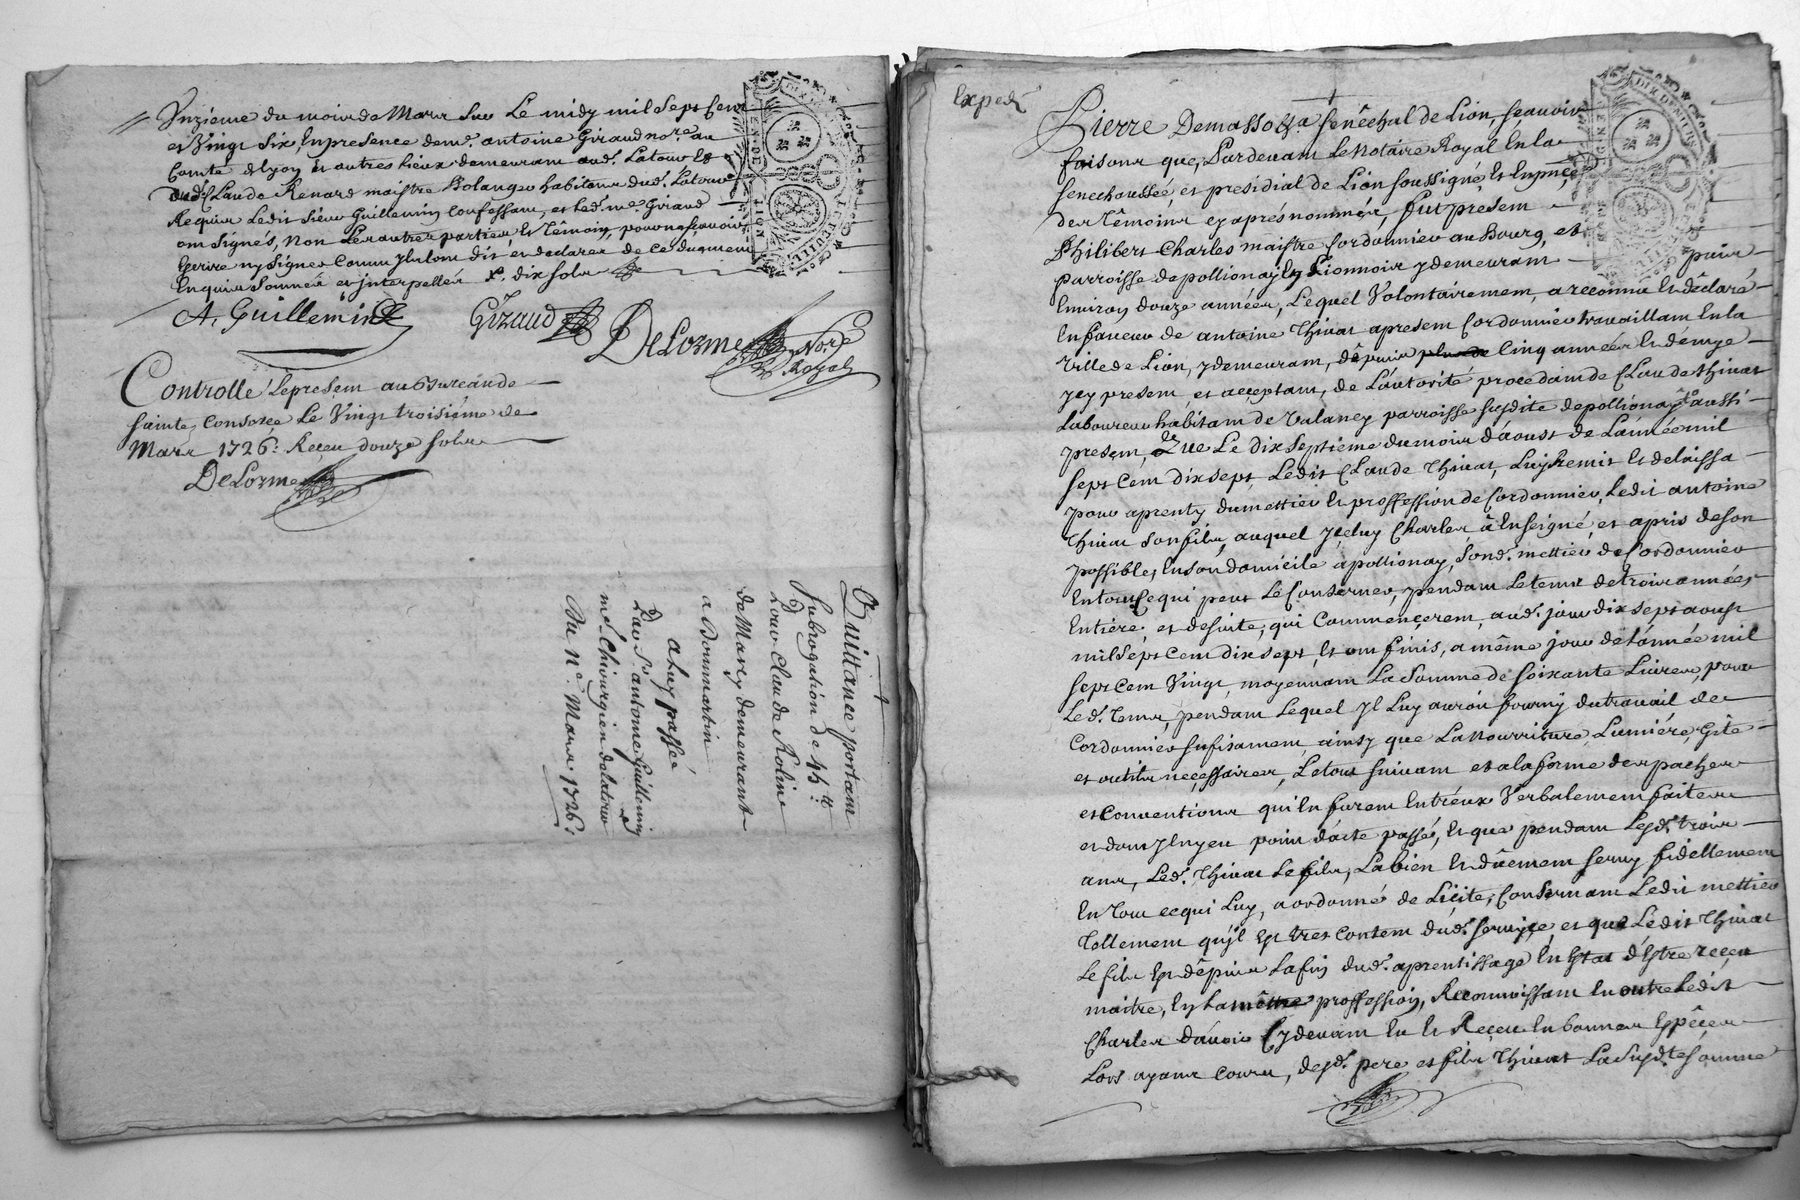 Unzieme du mois de Mars sur Le midy mil sept cent
et Vingt Six, En presence de me. antoine Giraud nore. au
Comté de lyon et autres Lieux demeurant aud. Latour Et
de Claude Renard maistre Bolanger habitant dud. Latour
Requis Ledit Sieur Guillemin Confessant, et led. me. Giraud
ont Signés, Non Les autres parties, Et Témoin, pour ne sçavoir
Ecrire ny Signer Comm' Ils l'ont dit et declaré de ce duement
Enquis Sommés et Interpellés dix sols
A. Guillemin
Giraud
DeLorme
Nore.
Royal
Controllé Le present au Bureau de
Sainte Consorce Le Vingt troisiéme de
Mars 1726: Receu douze sols
DeLorme
Quittance portant
Subrogation de 45 tt.
Pour Claude
de Marcy demeurant
a Dommartin
a luy passée
Par Sr. antoine Guillemin
me. Chirurgien de latour
Du 11e. Mars 1726:
GEN. DE LION
DIX DENIERS LA FEUILLE
Exped.
Pierre Demasso &ra. Senéchal de Lion, Sçavoir
faisons que, Pardevant Le Notaire Royal En la
Senechaussée, et presidial de Lion soussigné, Et En pnce
des Témoins cy aprés nommés, fut present
Philibert Charles maistre Cordonnier au Bourg, et
parroisse de pollionay En Lionnois y demeurant depuis
Environ douze années, Lequel Volontairement, a reconnu Et déclaré
En faveur de antoine Thivat a present Cordonnier travaillant En la
Ville de Lion, y demeurant, dépuis plus de Cinq années Et démye
Icy present et acceptant, de L'autorité procedant de Claude Thivat
Laboureur habitant de Valancy parroisse susdite de pollionay aussi
present, Que Le dix Septiéme du mois d'aoust de L'année mil
Sept Cent dix sept, Ledit Claude Thivat, Luy Remit Et delaissa
pour aprenty du mettier Et proffession de Cordonnier, Ledit antoine
Thivat Son fils, auquel Iceluy Charles à Enseigné et apris de son
possible, En son domicile a pollionay, Sond. mettier de Cordonnier
En tout Ce qui peut Le Conserner, pendant Le tems de trois années
Entiére, et de suite, qui Commencerent, aud. jour dix sept aoust
mil Sept Cent dix sept, Et ont finis, a même jour de L'année mil
Sept Cent Vingt, moyennant La Somme de soixante Livres, pour
Led. Tems, pendant Lequel Il Luy auroit fourny du travail de
Cordonnier sufisament, ainsy que La nourriture, Lumiére, Gite
et outils neçessaires, Le tout suivant et a la forme des paches
et Conventions qui En furent Entr'eux Verbalement faites
et dont Il n'y eu point d'acte passé, Et que pendant Lesd. trois
ans, Led. Thivat Le fils, La bien Et düement Servy fidellement
En Tout ce qui Luy, a ordonné de Licite, Consernant Ledit mettier
Tellement qu'Il Est tres Content dud. Service, et que Ledit Thivat
Le fils Est dépuis La fin dud. aprentissage En Etat d'Estre reçeu
maitre, En La même proffession, Reconnoissant En outre Ledit
Charles d'avoir Cy devant Eu Et Reçeu En bonnes Espêces
Lors ayant Cours, desd. pere et fils Thivat La Susdte. Somme